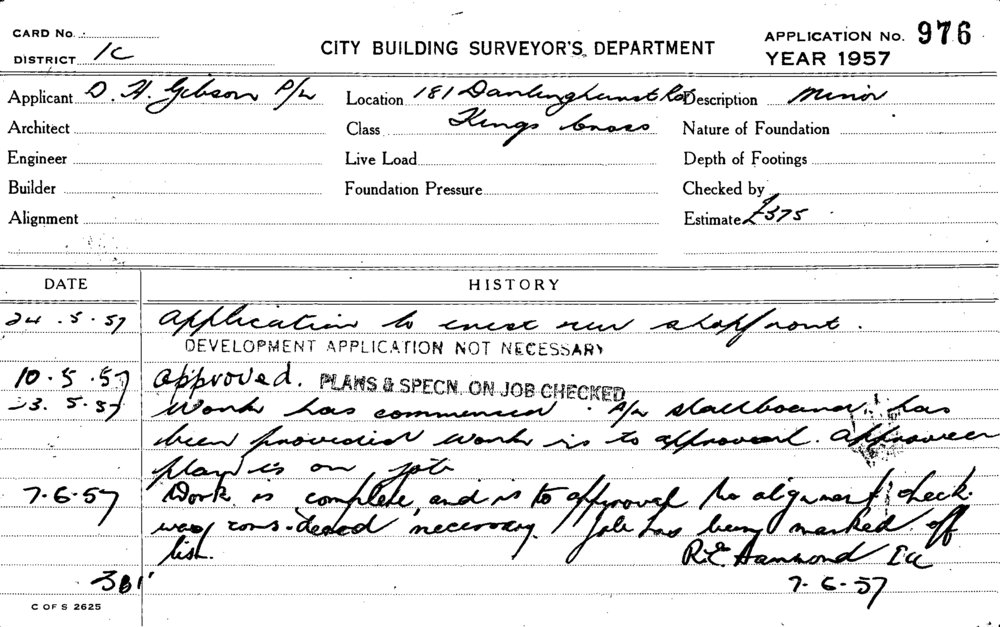 CARD No.
DISTRICT 1C
CITY BUILDING SURVEYOR'S DEPARTMENT
APPLICATION No. 976
YEAR 1957
Applicant D. H. Gibson P/L Location 181 Darlinghurst Rd Description Minor
Architect Class Kings Cross Nature of Foundation
Engineer Live Load Depth of Footings
Builder Foundation Pressure Checked by
Alignment Estimate £375
DATE HISTORY
24.5.57 Application to erect new shopfront.
DEVELOPMENT APPLICATION NOT NECESSARY
10.5.57 Approved. PLANS & SPECN. ON JOB CHECKED
23.5.57 Work has commenced. stallboard has
been provided work is to approval. Approved
plan is on job
7.6.57 Work is complete, and is to approval No alignment check
was considered necessary. Job has being marked off
list. R.E. Hammond
7-6-57
C OF S 2625